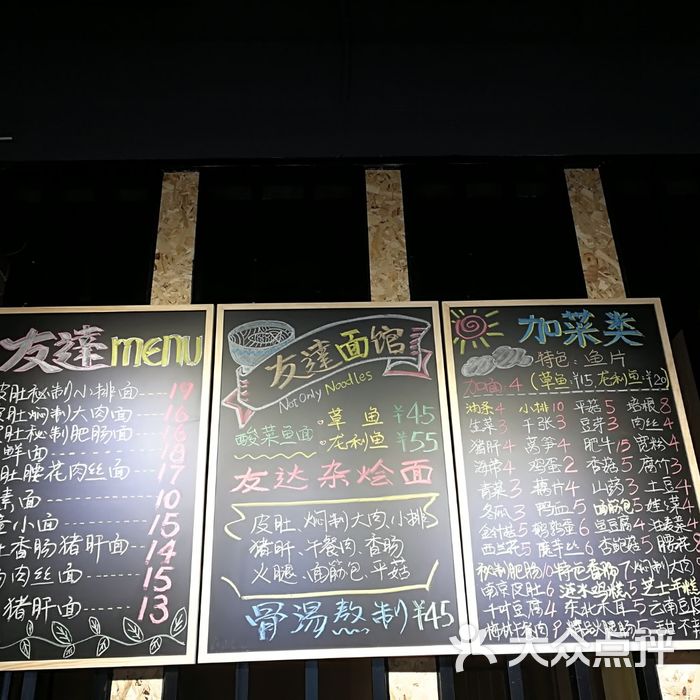 友達 MENU
皮肚秘制小排面---19
皮肚焖制大肉面---16
皮肚秘制肥肠面---16
鲜面---18
皮肚腰花肉丝面---17
素面---10
小面---15
香肠猪肝面---14
肉丝面---15
猪肝面---13
友達面馆
Not Only Noodles
酸菜鱼面
草鱼 ¥45
龙利鱼 ¥55
友达杂烩面
皮肚、焖制大肉、小排
猪肝、午餐肉、香肠
火腿、面筋包、平菇
骨湯熬制¥45
加菜类
特色:鱼片
加面 4 (草鱼¥15 龙利鱼¥20)
油条 4 小排10 平菇 5 培根 8
生菜 3 千张 3 豆芽 3 肉丝 4
猪肝 4 莴笋 4 肥牛15 宽粉 4
海带 4 鸡蛋 2 香菇 5 腐竹
青菜 3 藕片 4 山药 3 土豆
冬瓜 鸭血 4 面筋包 5 娃娃菜
金针菇 5 鹌鹑蛋 6 鱼豆腐 4 油麦菜
西兰花 5 魔芋丝 6 杏鲍菇 5 腰花
秘制肥肠10 特色香肠 7 焖制大肉
南京皮肚 6 涟水鸡糕 5 芝士年糕
千叶豆腐 4 东北木耳 5 云南豆
大众点评